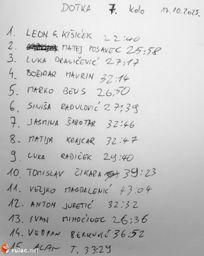 DOTKA 7. kolo 12.10.2025.
1. LEON G. KIŠIČEK 22:40
2. MATEJ POSAVEC 25:58
3. LUKA DRAGIČEVIĆ 27:17
4. BOŽIDAR MAVRIN 32:14
5. MARKO BEUS 26:50
6. SINIŠA RADULOVIĆ 27:39
7. JASMINA ŠAROTAR 32:46
8. MATIJA KRAJCAR 32:47
9. LUKA RADIČEK 29:40
10. TOMISLAV ČIKARA 39:23
11. VELJKO MAGDALENIĆ 43:04
12. ANTON JURETIĆ 32:32
13. IVAN MIHOČINEC 26:36
14. VEDRAN 36:52
15. ALAN T. 33:29
rulac.net